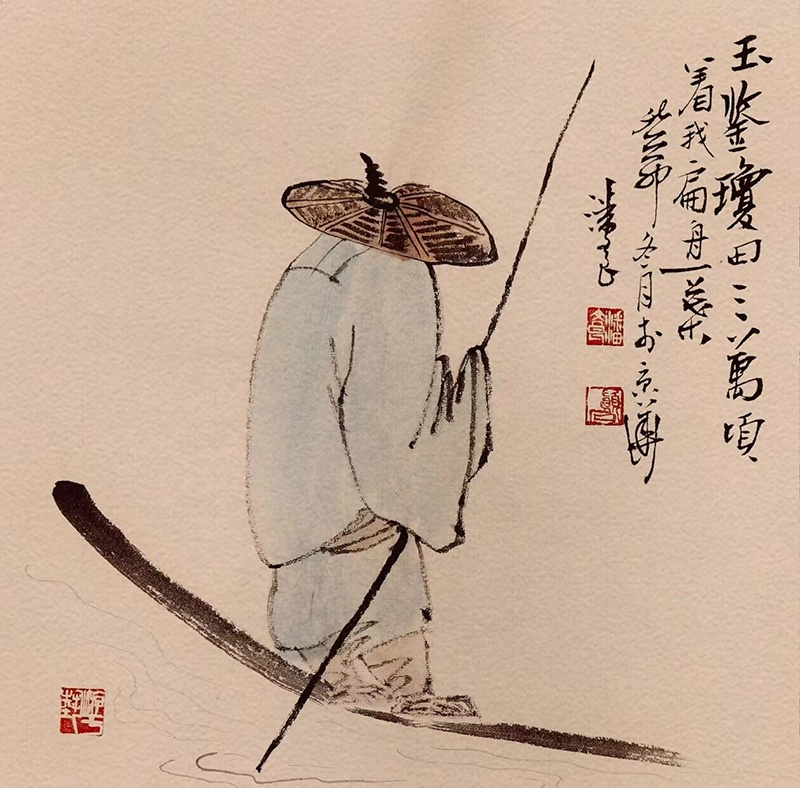 玉鉴瓊田三萬頃
着我扁舟一葉
癸卯冬月於京華
潘